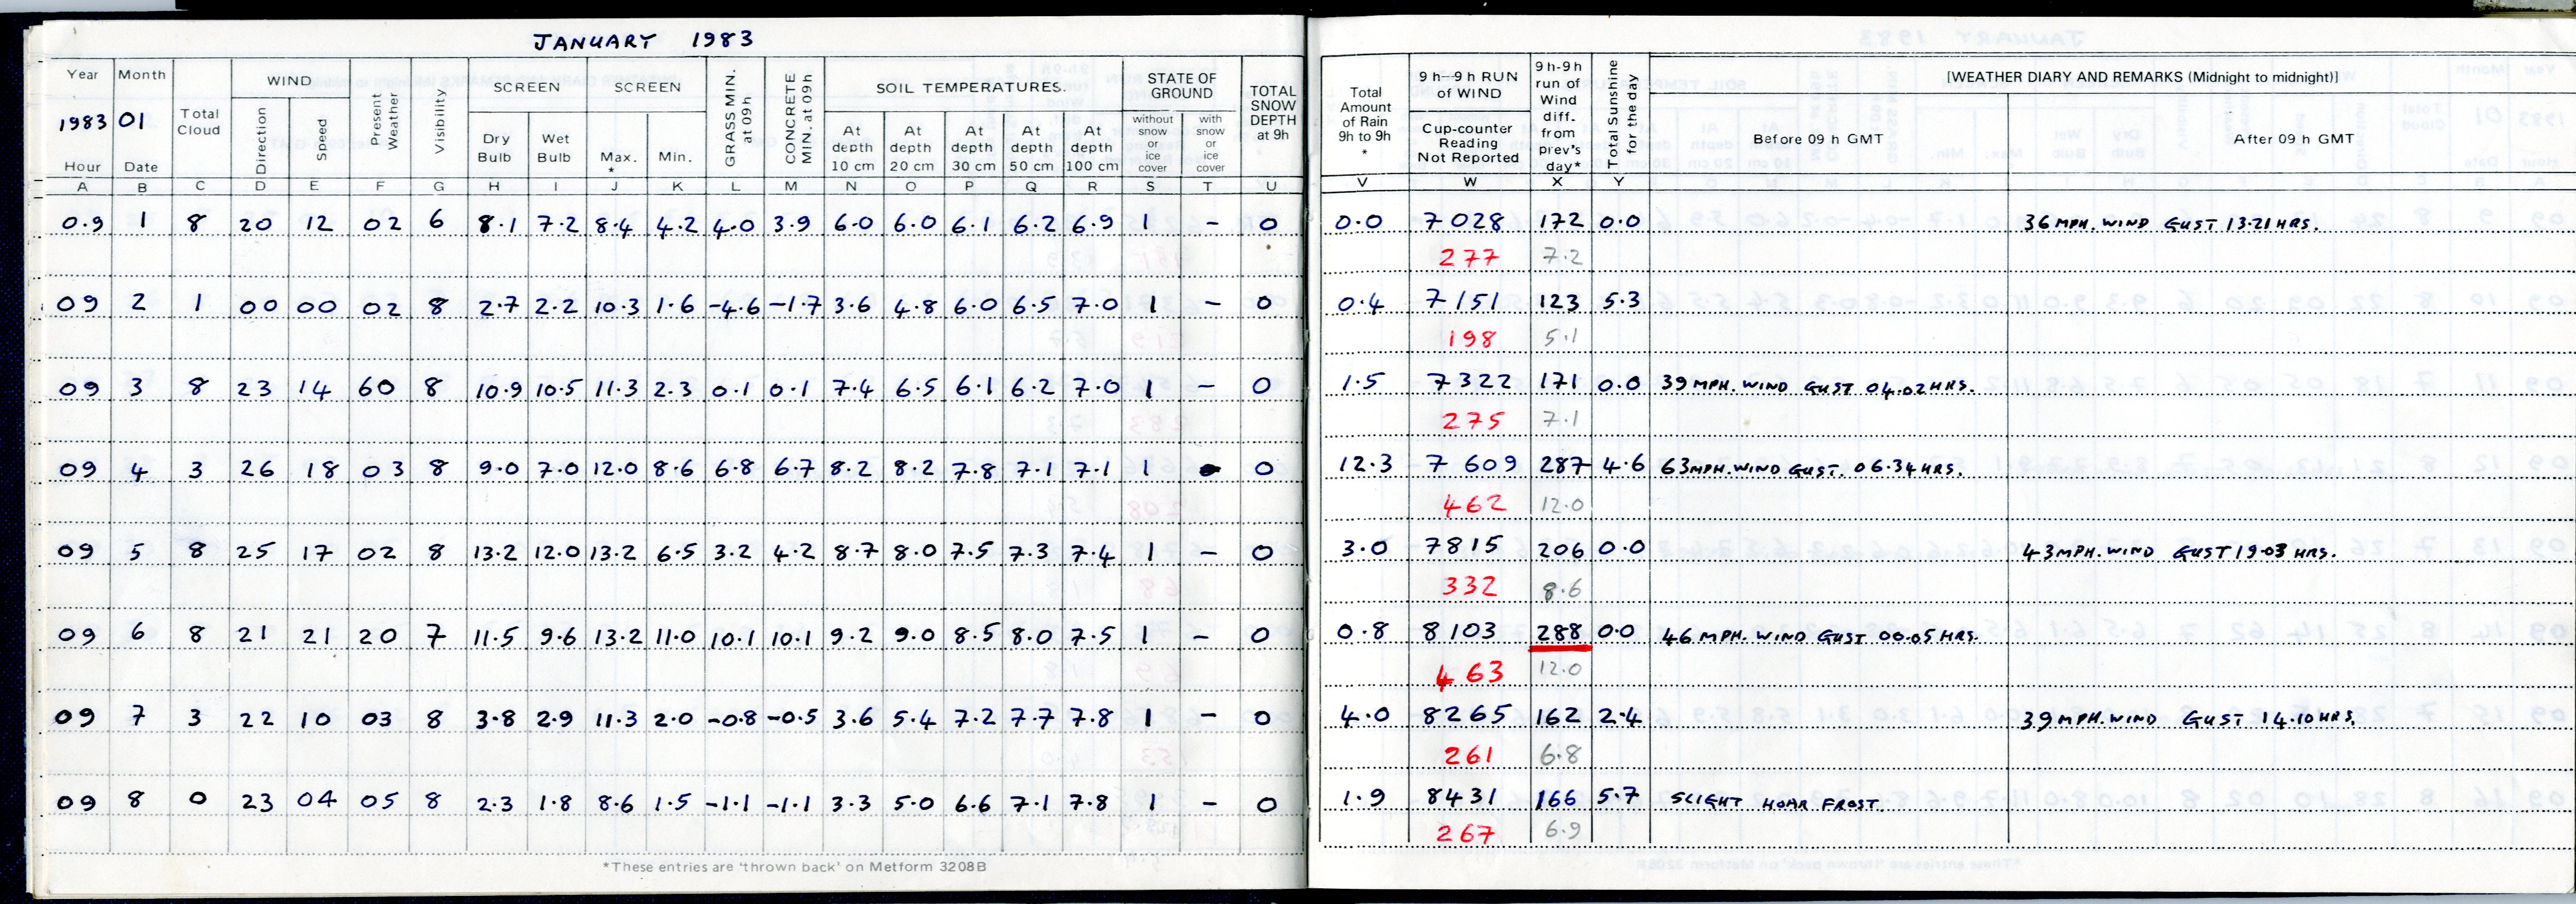 JANUARY 1983
Year Month Total Cloud WIND Present Weather Visibility SCREEN SCREEN GRASS MIN. at 09h CONCRETE MIN. at 09h SOIL TEMPERATURES. STATE OF GROUND TOTAL SNOW DEPTH at 9h
1983 01 Direction Speed Dry Bulb Wet Bulb Max. * Min. At depth 10 cm At depth 20 cm At depth 30 cm At depth 50 cm At depth 100 cm without snow or ice cover with snow or ice cover
Hour Date
A B C D E F G H I J K L M N O P Q R S T U
0.9 1 8 20 12 02 6 8.1 7.2 8.4 4.2 4.0 3.9 6.0 6.0 6.1 6.2 6.9 1 - 0
09 2 1 00 00 02 8 2.7 2.2 10.3 1.6 -4.6 -1.7 3.6 4.8 6.0 6.5 7.0 1 - 0
09 3 8 23 14 60 8 10.9 10.5 11.3 2.3 0.1 0.1 7.4 6.5 6.1 6.2 7.0 1 - 0
09 4 3 26 18 03 8 9.0 7.0 12.0 8.6 6.8 6.7 8.2 8.2 7.8 7.1 7.1 1 - 0
09 5 8 25 17 02 8 13.2 12.0 13.2 6.5 3.2 4.2 8.7 8.0 7.5 7.3 7.4 1 - 0
09 6 8 21 21 20 7 11.5 9.6 13.2 11.0 10.1 10.1 9.2 9.0 8.5 8.0 7.5 1 - 0
09 7 3 22 10 03 8 3.8 2.9 11.3 2.0 -0.8 -0.5 3.6 5.4 7.2 7.7 7.8 1 - 0
09 8 0 23 04 05 8 2.3 1.8 8.6 1.5 -1.1 -1.1 3.3 5.0 6.6 7.1 7.8 1 - 0
*These entries are 'thrown back' on Metform 3208B
Total Amount of Rain 9h to 9h * 9h-9h RUN of WIND Cup-counter Reading Not Reported 9h-9h run of Wind diff. from prev's day* Total Sunshine for the day [WEATHER DIARY AND REMARKS (Midnight to midnight)]
Before 09 h GMT After 09 h GMT
V W X Y
0.0 7028 172 0.0 36 MPH. WIND GUST 13.21 HRS.
277 7.2
0.4 7151 123 5.3
198 5.1
1.5 7322 171 0.0 39 MPH. WIND GUST 04.02 HRS.
275 7.1
12.3 7609 287 4.6 63 MPH. WIND GUST. 06.34 HRS.
462 12.0
3.0 7815 206 0.0 43 MPH. WIND GUST 19.03 HRS.
332 8.6
0.8 8103 288 0.0 46 MPH. WIND GUST 00.05 HRS.
463 12.0
4.0 8265 162 2.4 39 MPH. WIND GUST 14.10 HRS.
261 6.8
1.9 8431 166 5.7 SLIGHT HOAR FROST.
267 6.9